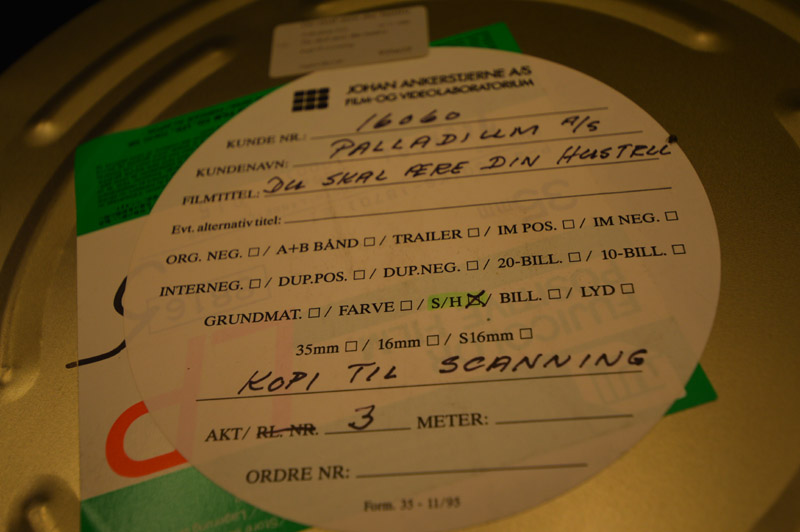 JOHAN ANKERSTJERNE A/S
FILM-OG VIDEOLABORATORIUM
KUNDE NR.: 16060
KUNDENAVN: PALLADIUM A/S
FILMTITEL: DU SKAL ÆRE DIN HUSTRU
Evt. alternativ titel:
ORG. NEG. ☐ / A+B BÅND ☐ / TRAILER ☐ / IM POS. ☐ / IM NEG. ☐
INTERNEG. ☐ / DUP.POS. ☐ / DUP.NEG. ☐ / 20-BILL. ☐ / 10-BILL. ☐
GRUNDMAT. ☐ / FARVE ☐ / S/H ☒ / BILL. ☐ / LYD ☐
35mm ☐ / 16mm ☐ / S16mm ☐
KOPI TIL SCANNING
AKT/ RL. NR. 3 METER:
ORDRE NR:
Form. 35 - 11/95